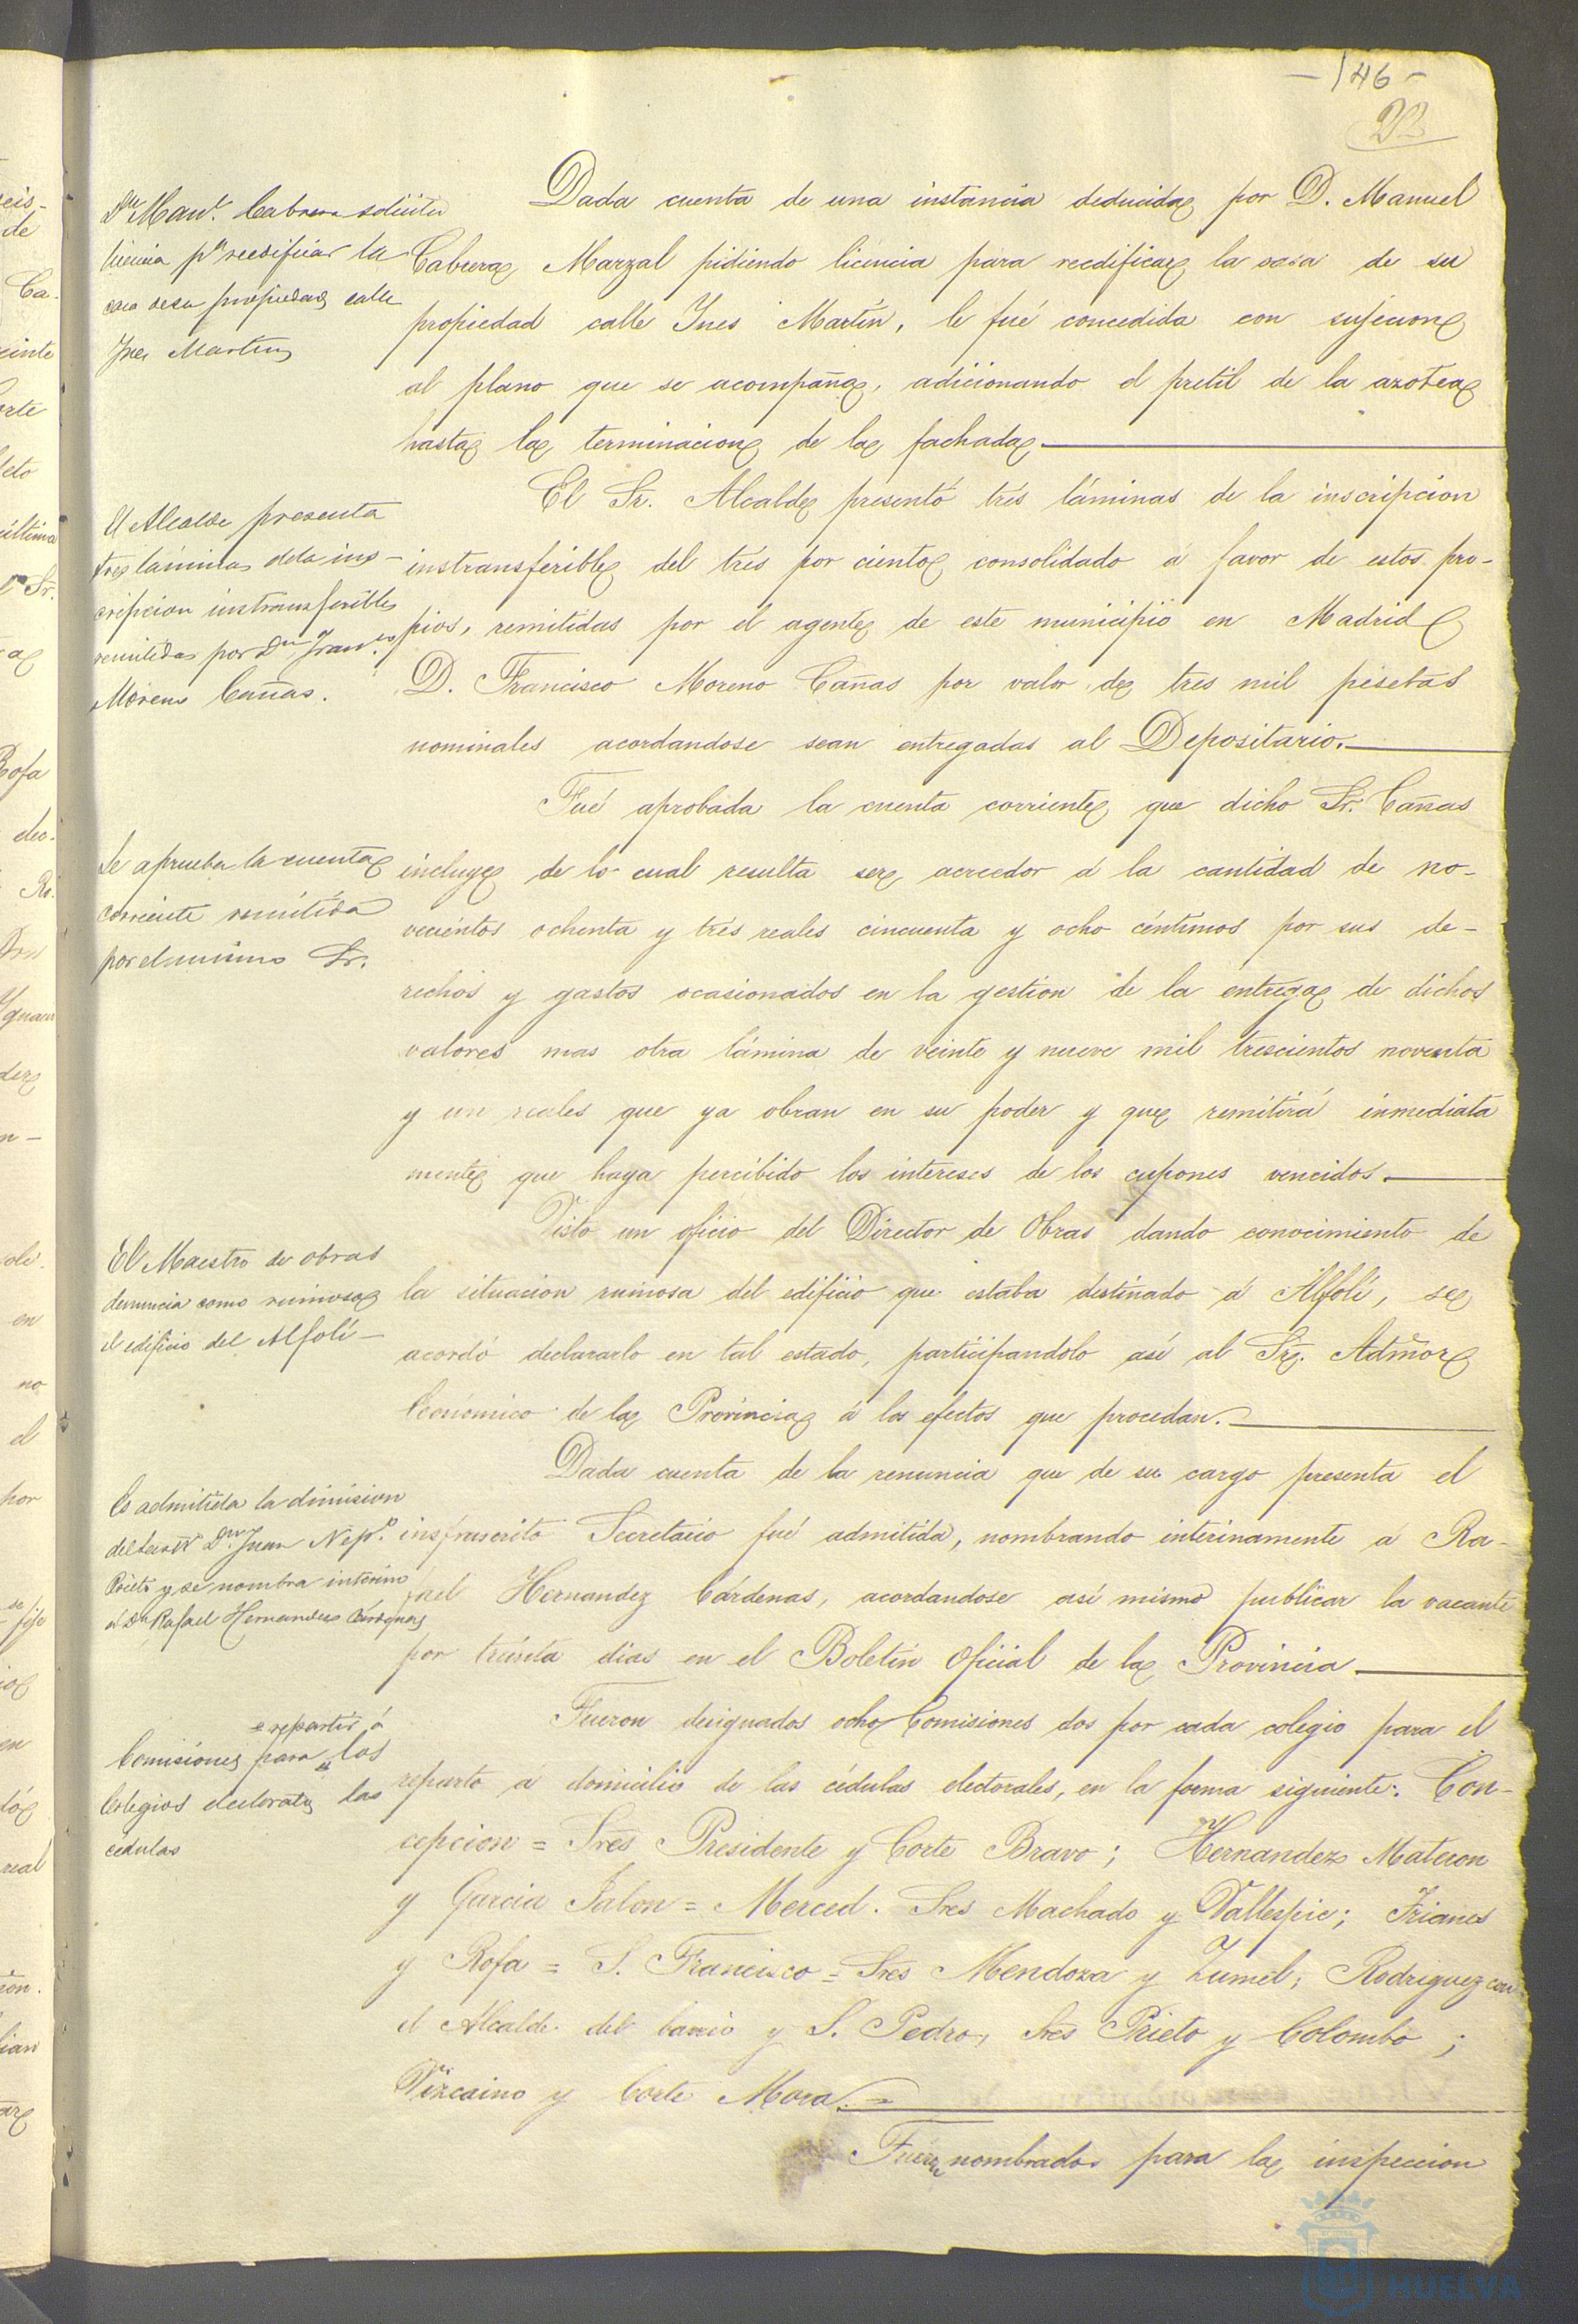 - 146 -
Dn Manl. Cabrera solicita
licencia pa reedificar la
casa de su propiedad calle
Ines Martin
Dada cuenta de una instancia deducida por D. Manuel
Cabrera Marzal pidiendo licencia para reedificar la casa de su
propiedad calle Ynes Martin, le fué concedida con sujecion
al plano que se acompaña, adicionando el pretil de la azotea
hasta la terminacion de la fachada.
El Alcalde presenta
tres láminas de la ins-
cripcion instransferible
remitidas por Dn Franco.
Moreno Cañas.
El Sr. Alcalde presentó tres láminas de la inscripcion
instransferible del tres por ciento consolidado á favor de estos pro-
pios, remitidas por el agente de este municipio en Madrid
D. Francisco Moreno Cañas por valor de tres mil pesetas
nominales acordandose sean entregadas al Depositario.
Se aprueba la cuenta
corriente remitida
por el mismo Sr.
Fué aprobada la cuenta corriente que dicho Sr. Cañas
incluye de lo cual resulta ser acreedor á la cantidad de no-
vecientos ochenta y tres reales cincuenta y ocho céntimos por sus de-
rechos y gastos ocasionados en la gestion de la entrega de dichos
valores mas otra lámina de veinte y nueve mil trescientos noventa
y un reales que ya obran en su poder y que remitirá inmediata
mente que haya percibido los intereses de los cupones vencidos.
El Maestro de obras
denuncia como ruinoso
el edificio del Alfolí-
Visto un oficio del Director de Obras dando conocimiento de
la situacion ruinosa del edificio que estaba destinado á Alfolí, se
acordó declararlo en tal estado, participandolo asi al Sr. Admor
Económico de la Provincia á los efectos que procedan.
Es admitida la dimision
del Secretº Dn Juan Nepo.
Prieto y se nombra interino
á Dn Rafael Hernandez Cárdenas
Dada cuenta de la renuncia que de su cargo presenta el
insfrascrito Secretario fué admitida, nombrando interinamente á Ra-
fael Hernandez Cárdenas, acordandose así mismo publicar la vacante
por treinta dias en el Boletin Oficial de la Provincia.
repartir á
Comisiones para los
Colegios electorales las
cédulas
Fueron designados ocho Comisiones dos por cada colegio para el
reparto á domicilio de las cédulas electorales, en la forma siguiente: Con-
cepcion = Sres Presidente y Corte Bravo; Hernandez Materon
y Garcia Jalon = Merced. Sres Machado y Vallespie; Trianes
y Rofa = S. Francisco = Sres Mendoza y Zumel; Rodriguez con
el Alcalde del barrio y S. Pedro, Sres Prieto y Colombo;
Vizcaino y Corte Mora. =
Fueron nombrados para la inspeccion
HUELVA